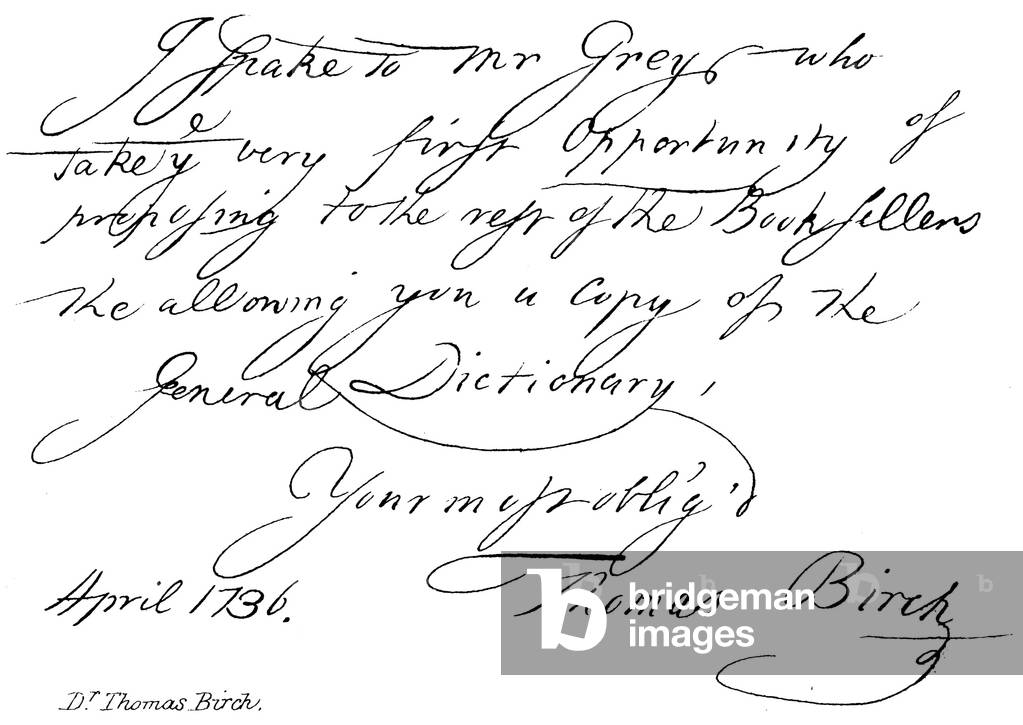 I spake to Mr Grey, who
take yᵉ very first Opportunity of
proposing to the rest of the Booksellers
the allowing you a Copy of the
General Dictionary,
Your most oblig'd
Thomas Birch
April 1736.
Dʳ Thomas Birch.
b bridgeman
images